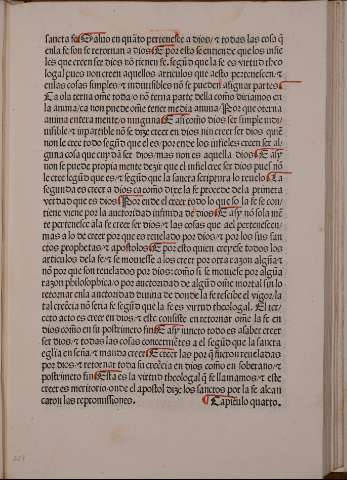 sancta fe. Saluo en quãto pertenesce a dios/ ⁊ todas las cosas q̃
en la fe son se retornan a dios. E por esto se entiende que los infie
les que creen ser dios nõ tienen fe. segũd que la fe es virtud theo
logal pues non creen aquellos articulos que a esto pertenescen/ ⁊
en las cosas simples/ ⁊ indiuisibles nõ se pueden asignar partes.
Ca o la terna om̃e toda/ o nõ terna parte della como diriamos en
la anima/ ca non puede om̃e tener media anima/ Por que o terna
anima entera mente/ o ninguna. E asi como dios ser simple indi-
uisible/ ⁊ inpartible nõ se dize creer en dios nin creer ser dios quẽ
non le cree todo segũd que el es/ por ende los infieles creen ser al
guna cosa que cuydan ser dios/ mas non es aquella dios. E asy
non se puede propia mente dezir que el infiel cree ser dios pues nõ
le cree segũd que es/ ⁊ segũd que la sancta scriptura lo reuelo. La
segunda es creer a dios/ ca como dixe la fe procede de la primera
verdad que es dios. Por ende el creer todo lo que so la fe se con-
tiene viene por la auctoridad infinida de dios. E asy nõ sola mẽ
te pertenesce a la fe creer ser dios/ ⁊ las cosas que a el pertenescen/
mas a lo de creer por que es reuelado por dios/ ⁊ por los sus san
ctos prophetas/ ⁊ apostolos. E por esto quien creyese todos los
articulos de la fe/ ⁊ se mouiesse a los creer por otra razon algũa/ ⁊
nõ por que son reuelados por dios: como si se mouiesse por algũa
razon philosophica/ o por auctoridad de algũd om̃e mortal sin lo
retornar en la auctoridad diuina de donde la fe rescibe el vigor/ la
tal creẽcia nõ seria fe segũd que la fe es virtud theologal. El ter-
cero acto es creer en dios/ ⁊ este consiste en retornar om̃e la fe en
dios como en su postrimero fin. E asy iuncto todo es a saber creer
ser dios/ ⁊ todas las cosas concernientes a el segũd que la sancta
eglia enseña/ ⁊ manda creer. E creer las por q̃ fueron reueladas
por dios/ ⁊ retornar toda su creẽcia en dios como en soberano/ ⁊
postrimero fin. Esta es la virtud theologal q̃ fe llamamos/ ⁊ este
creer es meritorio/ onde el apostol diz: los sanctos por la fe alcan
çaron las repromissiones. Capitulo quarto.